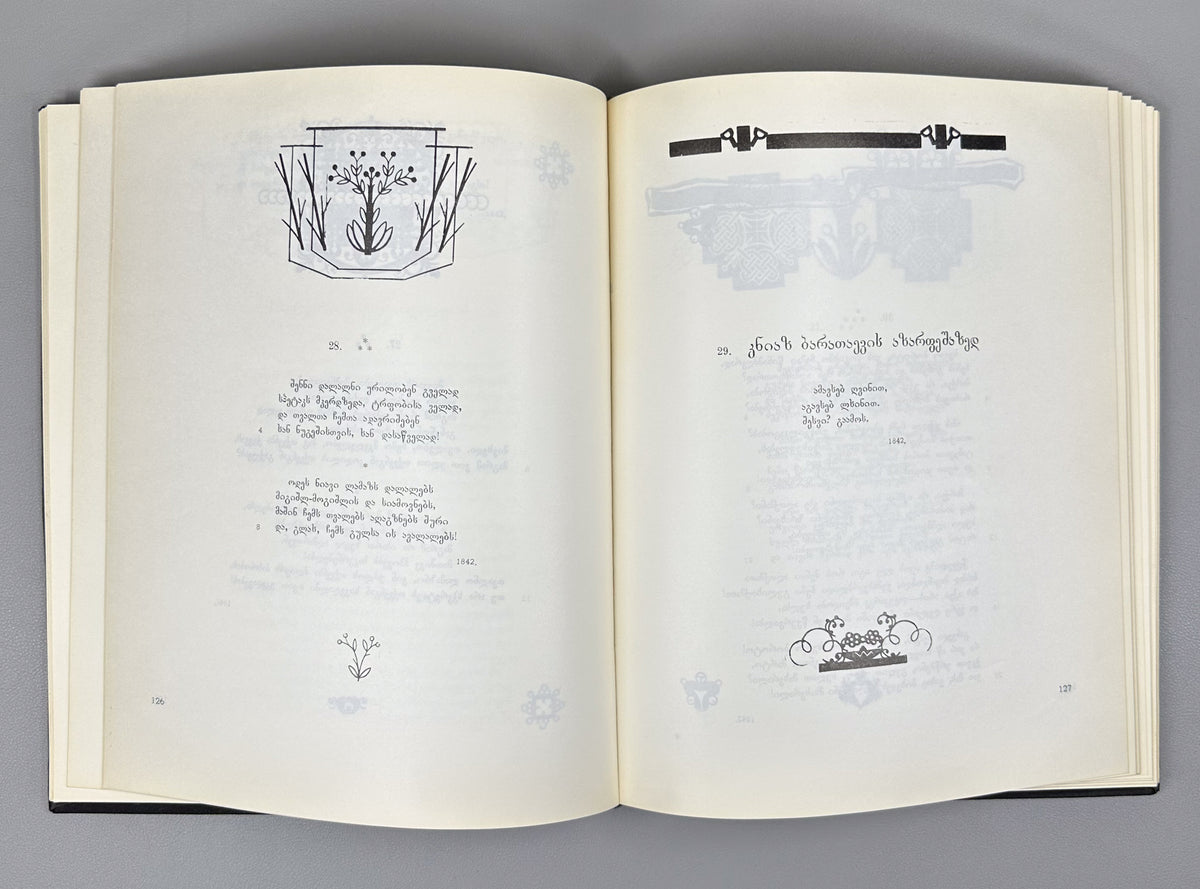 28. * * *
შენნი დალალნი ყრილობენ გველად
სპეტაკს მკერდზედა, ტრფობისა ველად,
და თვალთა ჩემთა ადავრიშებენ
4 ხან ნუგეშისთვის, ხან დასაწველად!
*
ოდეს ნიავი ლამაზს დალალებს
მიგიშლ-მოგიშლის და სიამოვნებს,
მაშინ ჩემს თვალებს აღაგზნებს შური
8 და, გლახ, ჩემს გულსა ის ავალალებს!
1842.
126
29. კნიაზ ბარათაევის აზარფეშაზედ
ამავსებ ღვინით,
აგავსებ ლხინით.
შესვი? გაამოს.
1842.
127